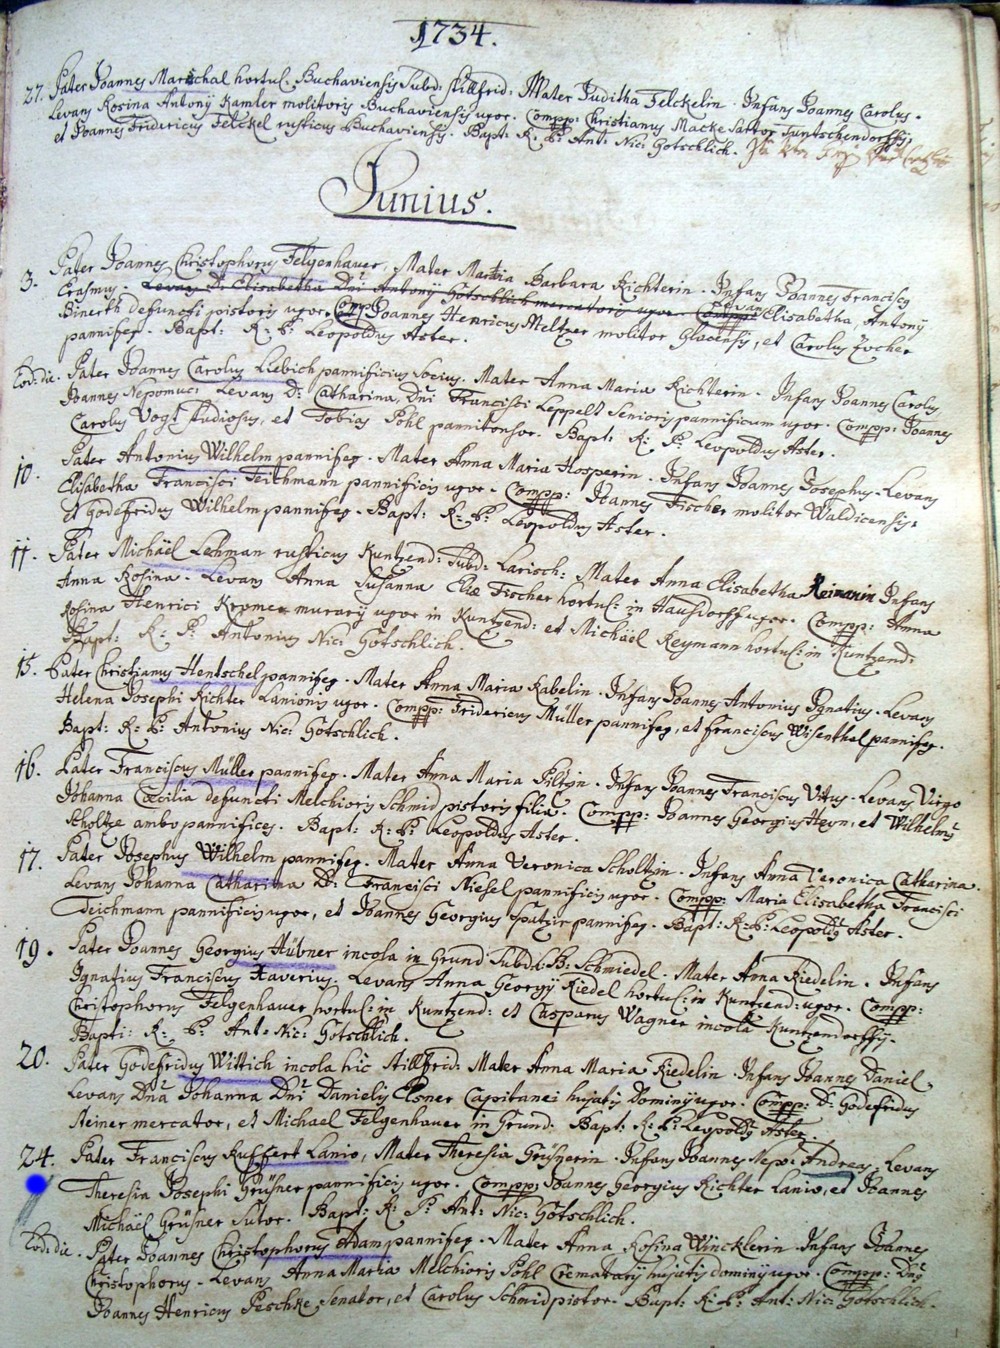 1734.
27. Pater Joannes Marschal hortul: Buchaviensis Subd: Stillfrid: Mater Juditha Felckelin. Infans Joannes Carolus.
Levans Rosina Antonÿ Kamler molitoris Buchaviensis uxor. Compp: Christianus Macke Sartor Kuntschendorffs,
et Joannes Fridericus Felckel rusticus Buchaviensis. Bapt: R: P: Ant: Nic: Gotschlich.
Junius.
3. Pater Joannes Christophorus Felgenhauer, Mater Maria Barbara Richterin. Infans Joannes Franciscus
Erasmus. Levans D: Elisabetha Dni Antonÿ Gotschlich mercatoris uxor. Compp: Levans Elisabetha, Antonÿ
Binerth defuncti pistoris uxor. Compp: Joannes Henricus Meltzer molitor Glacensis, et Carolus Zocher
pannifex. Bapt: R: P: Leopoldus Aster.
Eod: die. Pater Joannes Carolus Liebich pannificius socius. Mater Anna Maria Richterin. Infans Joannes Carolus
Joannes Nepomuc: Levans D: Catharina, Dni Francisci Leppelt Senioris pannificum uxor. Compp: Joannes
Carolus Vogt studiosus, et Tobias Pohl pannitonsor. Bapt: R: P: Leopoldus Aster.
10. Pater Antonius Wilhelm pannifex. Mater Anna Maria Hosperin. Infans Joannes Josephus. Levans
Elisabetha Francisci Teichmann pannificis uxor. Compp: Joannes Fischer molitor Waldicensis,
et Godefridus Wilhelm pannifex. Bapt: R: P: Leopoldus Aster.
11. Pater Michaël Lehman rusticus Kuntzend: Subd: Larisch: Mater Anna Elisabetha Reimanin Infans
Anna Rosina. Levans Anna Susanna Eliæ Fischer hortul: in Hausdorff uxor. Compp: Anna
Rosina Henrici Krymer murarÿ uxor in Kuntzend: et Michaël Reymann hortul: in Kuntzend:
Bapt: R: P: Antonius Nic: Gotschlich.
15. Pater Christianus Hentschel pannifex. Mater Anna Maria Kabelin. Infans Joannes Antonius Ignatius. Levans
Helena Josephi Richter Lanionis uxor. Compp: Fridericus Müller pannifex, et Franciscus Wisenthel pannifex.
Bapt: R: P: Antonius Nic: Gotschlich.
16. Pater Franciscus Müller pannifex. Mater Anna Maria Piltzin. Infans Joannes Franciscus Vitus. Levans Virgo
Johanna Cæcilia defuncti Melchioris Schmid pistoris filia. Compp: Joannes Georgius Heyn, et Wilhelmus
Scholtze ambo pannifices. Bapt: R: P: Leopoldus Aster.
17. Pater Josephus Wilhelm pannifex. Mater Anna Veronica Scholtzin. Infans Anna Veronica Catharina.
Levans Johanna Catharina D: Francisci Niesel pannificis uxor. Compp: Maria Elisabetha Francisci
Teichmann pannificis uxor, et Joannes Georgius Spatzir pannifex. Bapt: R: P: Leopold9 Aster.
19. Pater Joannes Georgius Hübner incola in Grund Subd: L: B: Schmiedel. Mater Anna Riedelin. Infans
Ignatius Franciscus Xaverius. Levans Anna Georgÿ Riedel hortul: in Kuntzend: uxor. Compp:
Christophorus Felgenhauer hortul: in Kuntzend: et Casparus Wagner incola Kuntzendorffs.
Bapt: R: P: Ant: Nic: Gotschlich.
20. Pater Godefridus Wittich incola hic Stillfrid: Mater Anna Maria Riedelin. Infans Joannes Daniel,
Levans Dna Johanna Dni Danielis Elsner Capitanei hujatis Dominÿ uxor. Compp: D: Godefridus
Steiner mercator, et Michael Felgenhauer in Grund: Bapt: R: P: Leopold9 Aster.
24. Pater Franciscus Ruffert Lanio, Mater Theresia Grüsnerin. Infans Joannes Nep: Andreas. Levans
Theresia Josephi Grüsner pannificis uxor. Compp: Joannes Georgius Richter Lanio, et Joannes
Michaël Grüsner Sutor. Bapt: R: P: Ant: Nic: Gotschlich.
Eod: die. Pater Joannes Christophorus Adam pannifex. Mater Anna Rosina Wincklerin. Infans Joannes
Christophorus. Levans Anna Maria Melchioris Pohl Crematorÿ hujatis dominÿ uxor. Compp: Dn9
Joannes Henricus Peschke, Senator, et Carolus Schmid pistor. Bapt: R: P: Ant: Nic: Gotschlich.